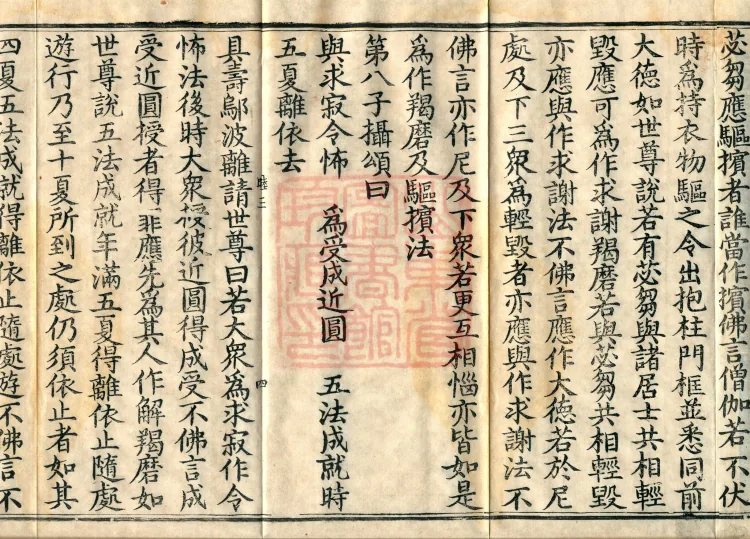 苾芻應驅擯者誰當作擯佛言僧伽若不伏
時為持衣物驅之令出抱柱門框並悉同前
大德如世尊說若有苾芻與諸居士共相輕
毀應可為作求謝羯磨若與苾芻共相輕毀
亦應與作求謝法不佛言應作大德若於尼
處及下三衆為輕毀者亦應與作求謝法不
佛言亦作尼及下衆若更互相惱亦皆如是
為作羯磨及驅擯法
第八子攝頌曰
與求寂令怖 為受成近圓 五法成就時
五夏離依去
具壽鄔波離請世尊曰若大衆為求寂作令
怖法後時大衆授彼近圓得成受不佛言成
受近圓授者得罪應先為其人作解羯磨如
世尊說五法成就年滿五夏得離依止隨處
遊行乃至十夏所到之處仍須依止者如其
四夏五法成就得離依止隨處遊不佛言不
四